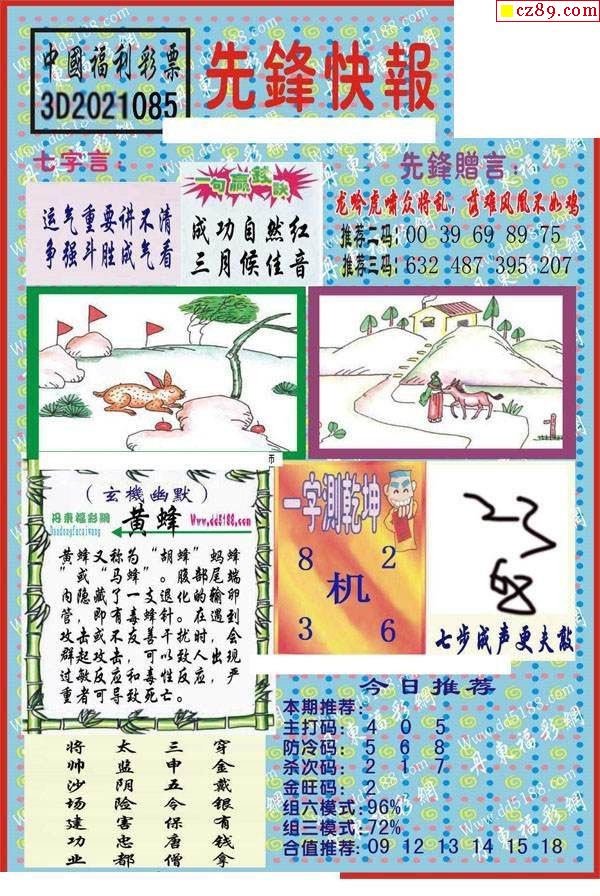 cz89.com
中國福利彩票
3D2021085
先鋒快報
七字言：
运气重要讲不清
争强斗胜成气看
一句赢錢訣
成功自然红
三月候佳音
先鋒贈言：
龙吟虎啸众将乱，落难凤凰不如鸡
推荐二码：00 39 69 89 75
推荐三码：632 487 395 207
（玄機幽默）
丹東福彩網
Dandongfucaiwang
黄蜂
Www.dd5188.com
黄蜂又称为“胡蜂”蚂蜂
”或“马蜂”。腹部尾端
内隐藏了一支退化的输卵
管，即有毒蜂针。在遇到
攻击或不友善干扰时，会
群起攻击，可以致人出现
过敏反应和毒性反应，严
重者可导致死亡。
一字测乾坤
8 2
机
3 6
七步成声更夫敲
将 太 三 穿
帅 监 申 金
沙 阴 五 戴
场 险 令 银
建 害 保 有
功 忠 唐 钱
业 都 僧 拿
今日推荐
本期推荐：
主打码：4 0 5
防冷码：5 6 8
杀次码：2 1 7
金旺码：2
组六模式：96%
组三模式：72%
合值推荐：09 12 13 14 15 18
Www.dd5188.com
丹東福彩網